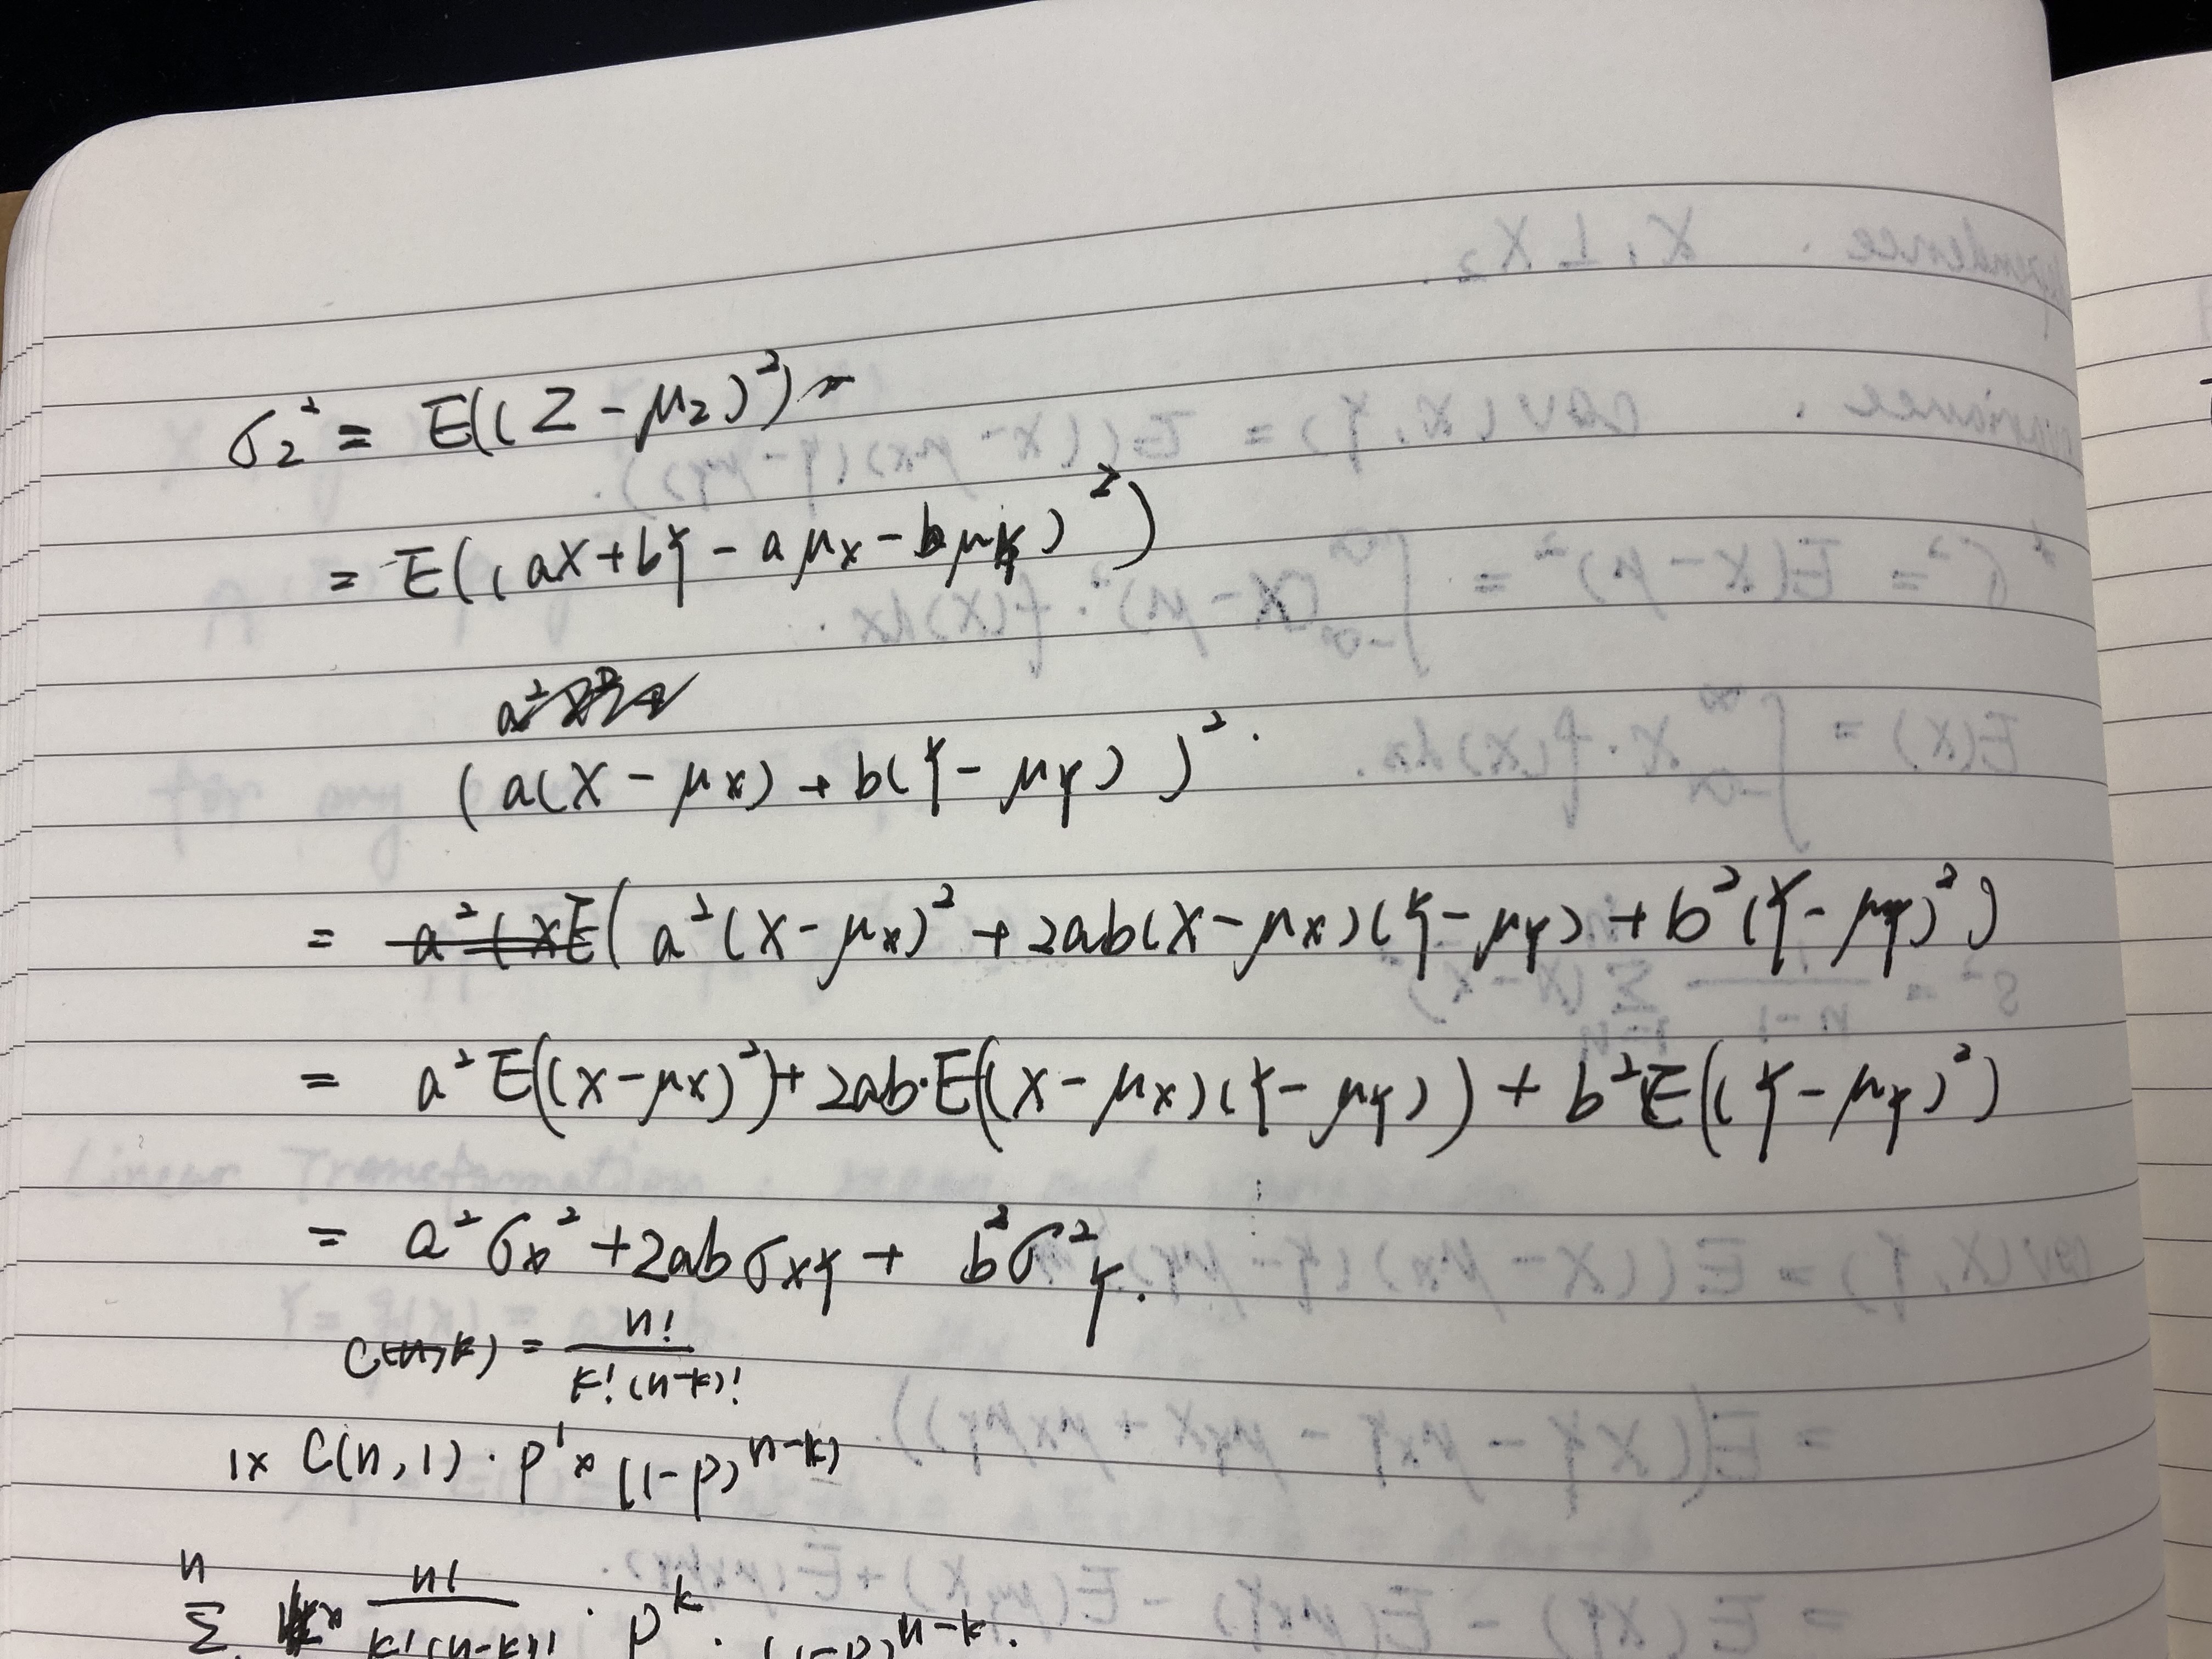 σ_Z² = E((Z - μ_Z)²) =
= E((aX + bY - aμ_X - bμ_Y)²)
a²
(a(X - μ_X) + b(Y - μ_Y))².
= a²(X E(a²(X - μ_X)² + 2ab(X - μ_X)(Y - μ_Y) + b²(Y - μ_Y)²)
= a²E((X - μ_X)²) + 2ab·E((X - μ_X)(Y - μ_Y)) + b²E((Y - μ_Y)²)
= a²σ_X² + 2abσ_XY + b²σ²_Y.
C(n,k) = n! / k!(n-k)!
1× C(n,1) · p¹ × (1-p)^(n-k)
n
Σ k× n! / k!(n-k)! · p^k · (1-p)^(n-k).